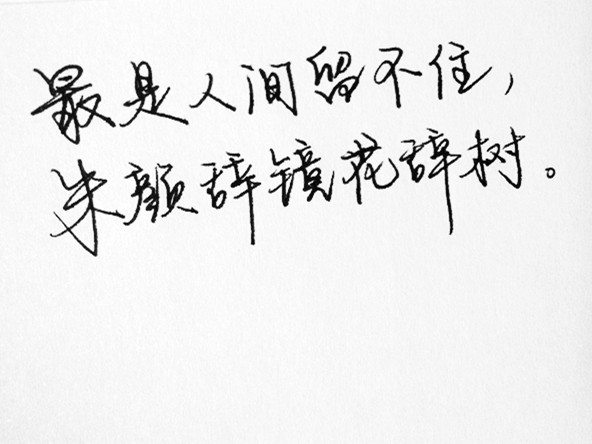 最是人间留不住，
朱颜辞镜花辞树。